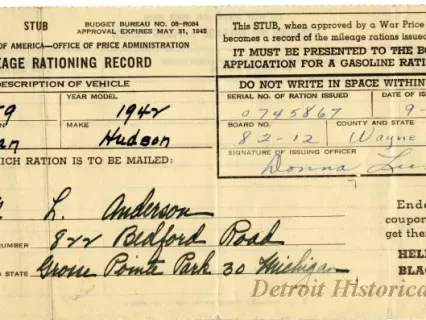 STUB
BUDGET BUREAU NO. 08-R084
APPROVAL EXPIRES MAY 31, 1945
OF AMERICA—OFFICE OF PRICE ADMINISTRATION
MILEAGE RATIONING RECORD
DESCRIPTION OF VEHICLE
YEAR MODEL
1942
MAKE
Hudson
WHICH RATION IS TO BE MAILED:
L. Anderson
NUMBER
822 Bedford Road
STATE
Grosse Pointe Park 30 Michigan
This STUB, when approved by a War Price
becomes a record of the mileage rations issued
IT MUST BE PRESENTED TO THE BO
APPLICATION FOR A GASOLINE RATI
DO NOT WRITE IN SPACE WITHIN
SERIAL NO. OF RATION ISSUED
DATE OF IS
0745867
9-
BOARD NO.
COUNTY AND STATE
82-12
Wayne
SIGNATURE OF ISSUING OFFICER
Donna
Endo
coupon
get the
HEL
BLAC
Detroit Historica